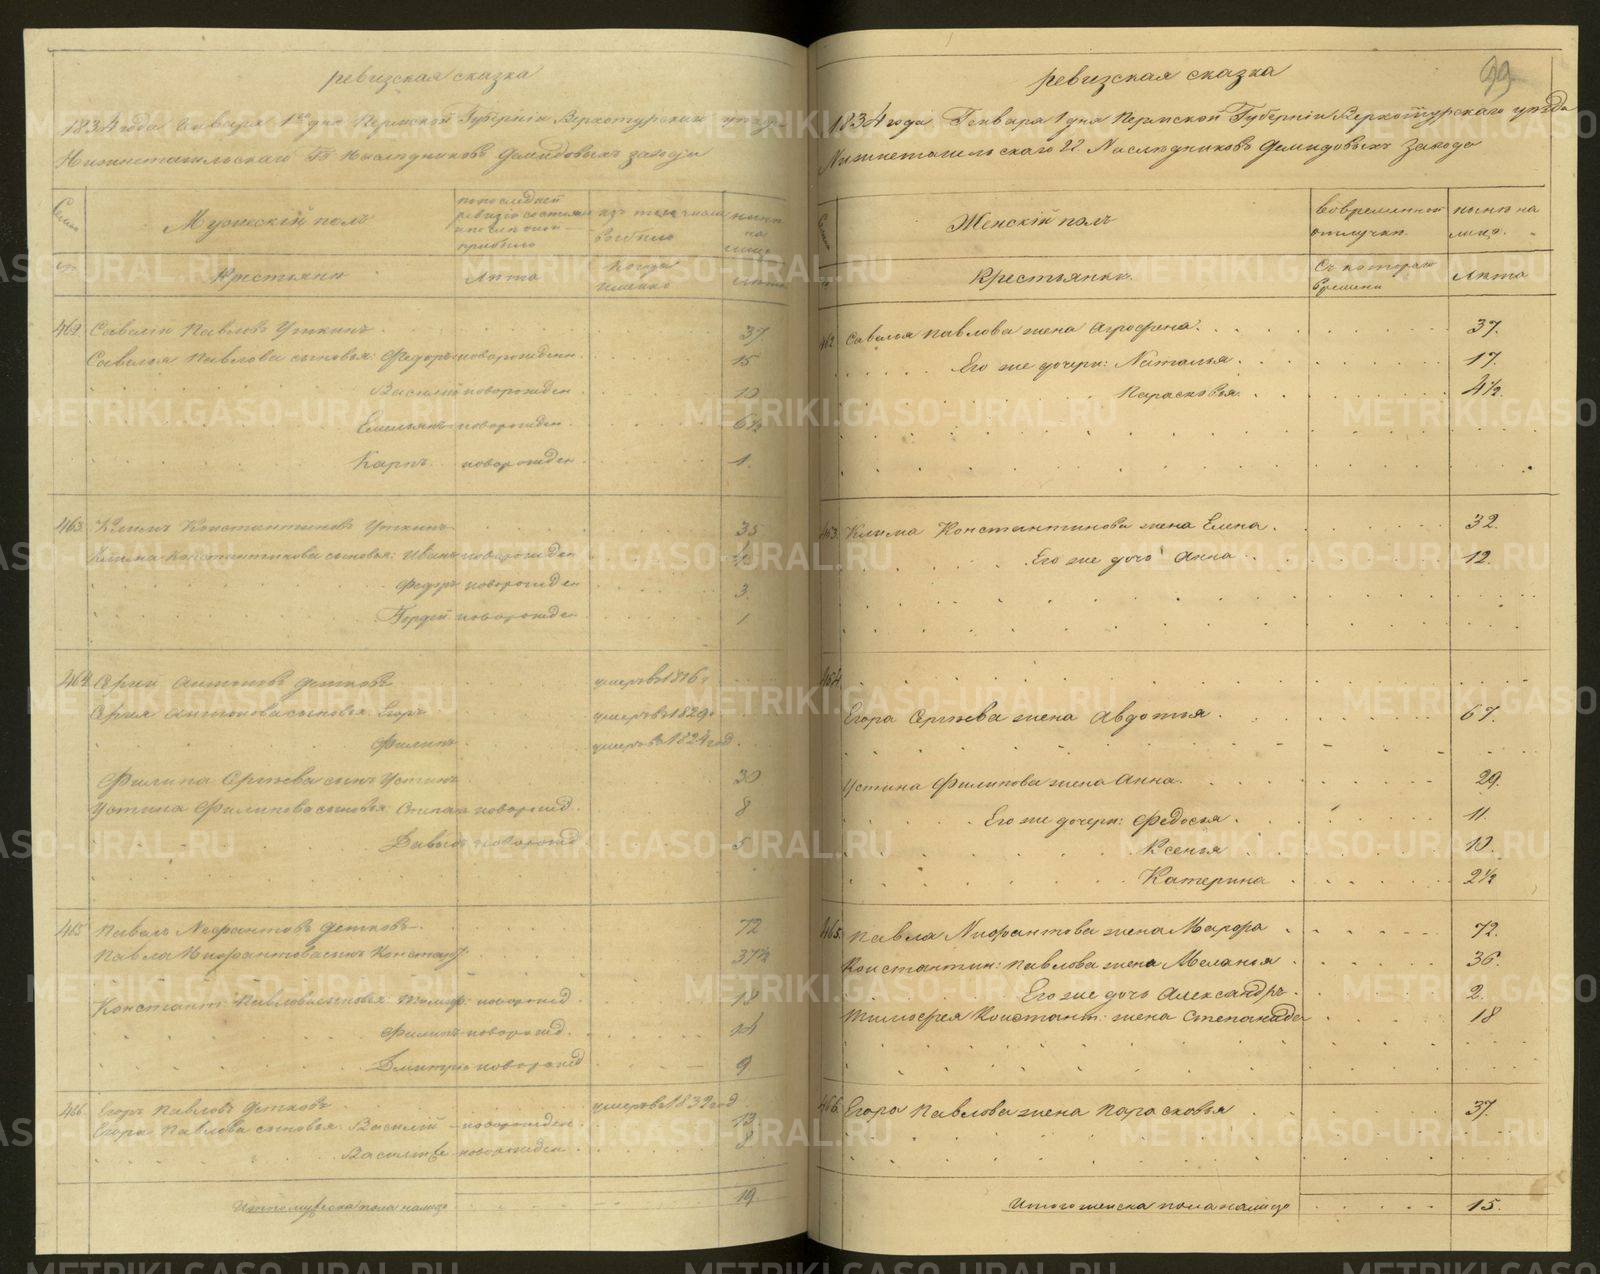 ревизская сказка
1834 года Генваря 1го дня Пермской Губернiи Верхотурскаго уезда
Нижнетагильскаго ГГ Наследниковъ Демидовыхъ завода
Мужескiй полъ
по последней ревизiи состояло и после оной прибыло
изъ того числа выбыло
ныне на лице
Крестьяни
Лета
Когда именно
Лета
462 Савелiй Павловъ Уткинъ 37
Савелья Павлова сыновья: Федоръ новорожденн. 15
Василiй новорожден 10
Емельянъ новорожден. 6½
Карпъ новорожден 1.
463 Климъ Константиновъ Уткинъ 35
Клима Константинова сыновья: Иванъ новорожден
Федоръ новорожден 3.
Гордей новорожден 1
464 Сергей Антоновъ Детковъ умеръ в 1816 г
Сергея Антонова сыновья Егоръ умеръ в 1829
Филипъ умеръ в 1824 год
Филипа Сергеева сынъ Устинъ 30
Устина Филипова сыновья: Степанъ новорожд. 8
Давыдъ новорожд 5
465 Павелъ Неофантовъ Детковъ 72
Павла Ниофантова сынъ Констант: 37½
Констант: Павлова сыновья Тимоф: новорожд 18
Филипъ новорожд. 14
Дмитрiй новорожд 9
466. Егоръ Павловъ Детковъ умеръ в 1832 год
Егора Павлова сыновья: Василiй новорожден. 13
Василiй 2й новорожден 8
Итого мужеска пола налицо 19.
99
ревизская сказка
1834 года Генваря 1 дня Пермской Губернiи Верхотурскаго уезда
Нижнетагильскаго ГГ. Наследниковъ Демидовыхъ завода
Женскiй полъ
во временной отлучке
ныне на лице.
Крестьянки.
Съ котораго времени
Лета
462 Савелья Павлова жена Агрофена. 37.
Его же дочери: Наталья 17.
Парасковья 4½.
463. Клима Константинова жена Елена. 32.
Его же дочь Анна 12.
464.
Егора Сергеева жена Авдотья 67.
Устина Филипова жена Анна. 29.
Его же дочери: Федосья. 11.
Ксенья 10.
Катерина 2½
465. Павла Ниофантова жена Марфа 72.
Константин: Павлова жена Меланья 36.
Его же дочь Александра 2.
Тимофея Констант: жена Степанида 18
466. Егора Павлова жена Парасковья 37.
Итого женска пола налицо 15.
METRIKI.GASO-URAL.RU